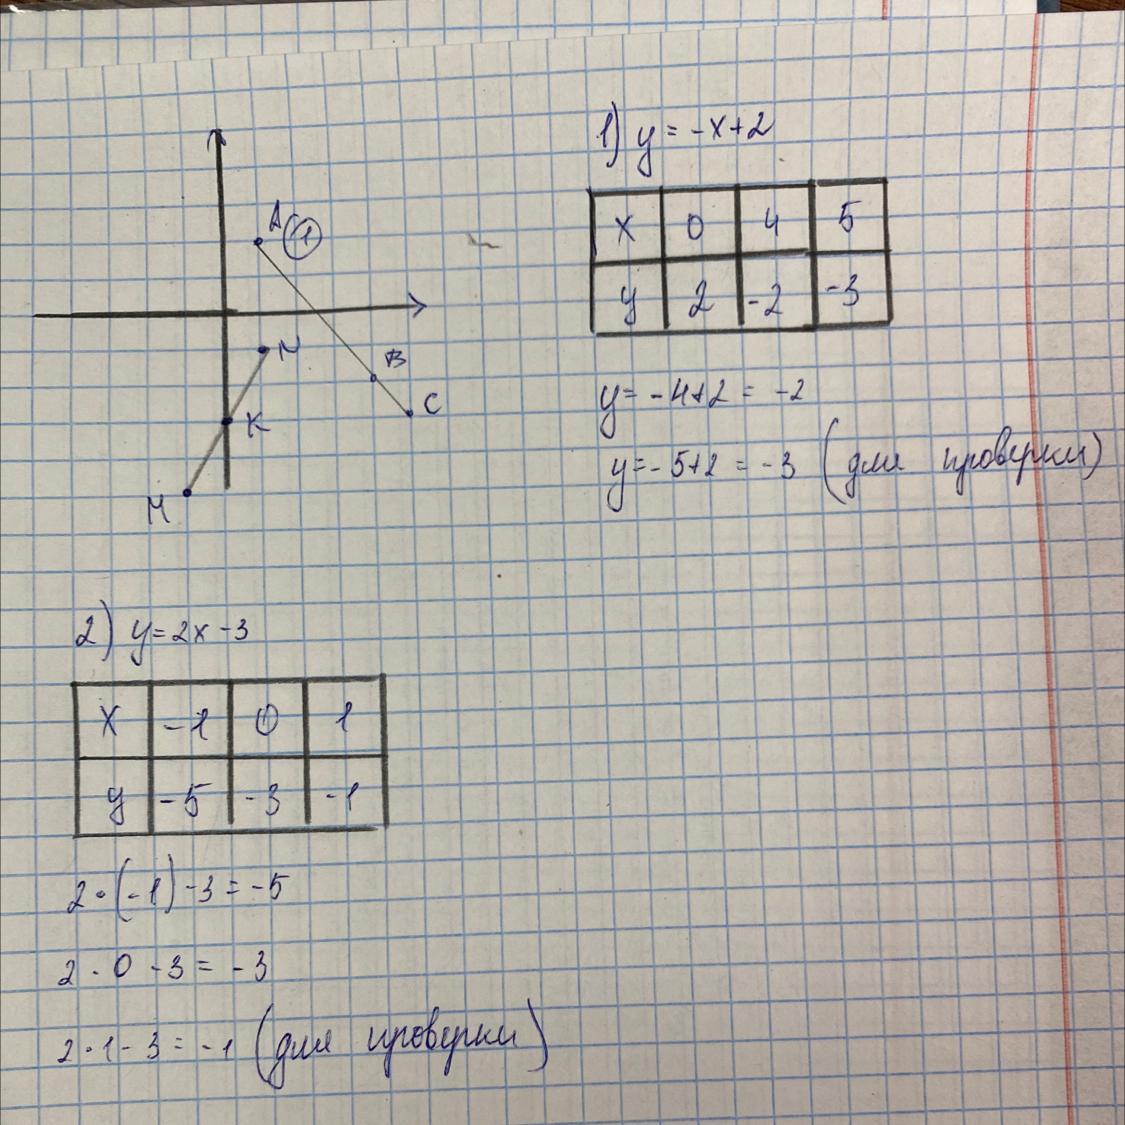 1) y = -x+2
A (1)
x 0 4 5
y 2 -2 -3
N
B
C
K
M
y = -4+2 = -2
y = -5+2 = -3 (для проверки)
2) y = 2x - 3
x -1 0 1
y -5 -3 -1
2 · (-1) - 3 = -5
2 · 0 - 3 = -3
2 · 1 - 3 = -1 (для проверки)